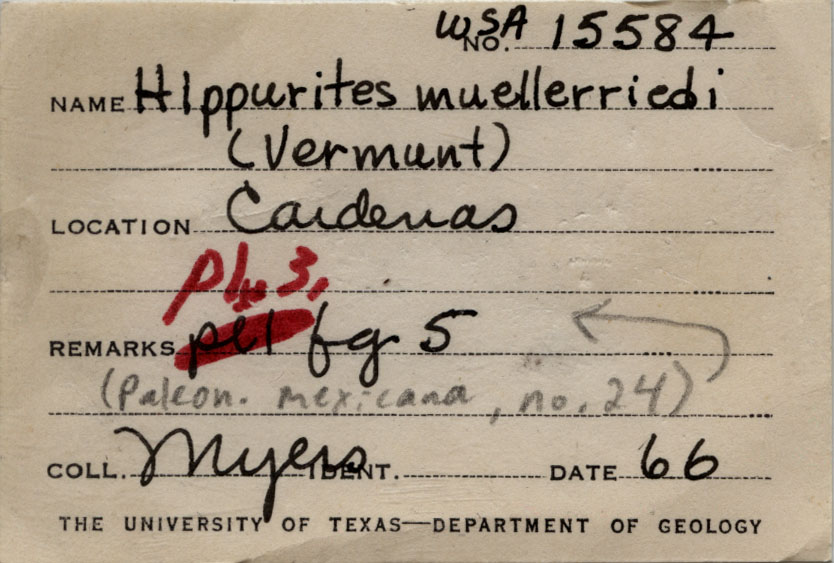 WSA NO. 15584
NAME HIppurites muellerriedi
(Vermunt)
LOCATION Cardenas
pl. 3,
REMARKS pl 1 fg 5
(Paleon. mexicana, no. 24)
COLL. Myers IDENT. DATE 66
THE UNIVERSITY OF TEXAS—DEPARTMENT OF GEOLOGY